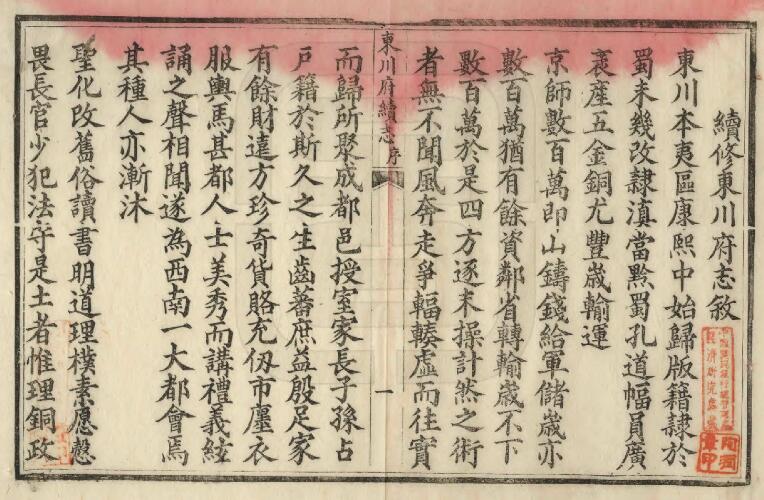 續修東川府志敘
東川本夷區康熙中始歸版籍隷於
蜀未幾改隷滇當黔蜀孔道幅員廣
袤產五金銅尤豐歲輸運
京師數百萬即山鑄錢給軍儲歲亦
數百萬猶有餘資鄰省轉輸歲不下
數百萬於是四方逐末操計然之術
者無不聞風奔走爭輻輳虛而往實
東川府續志 序
一
而歸所聚成都邑授室家長子孫占
戸籍於斯久之生齒蕃庶益殷足家
有餘財遠方珍奇貨賂充仭市廛衣
服輿馬甚都人士美秀而講禮義絃
誦之聲相聞遂為西南一大都會焉
其種人亦漸沐
聖化改舊俗讀書明道理樸素愿慤
畏長官少犯法守是土者惟理銅政